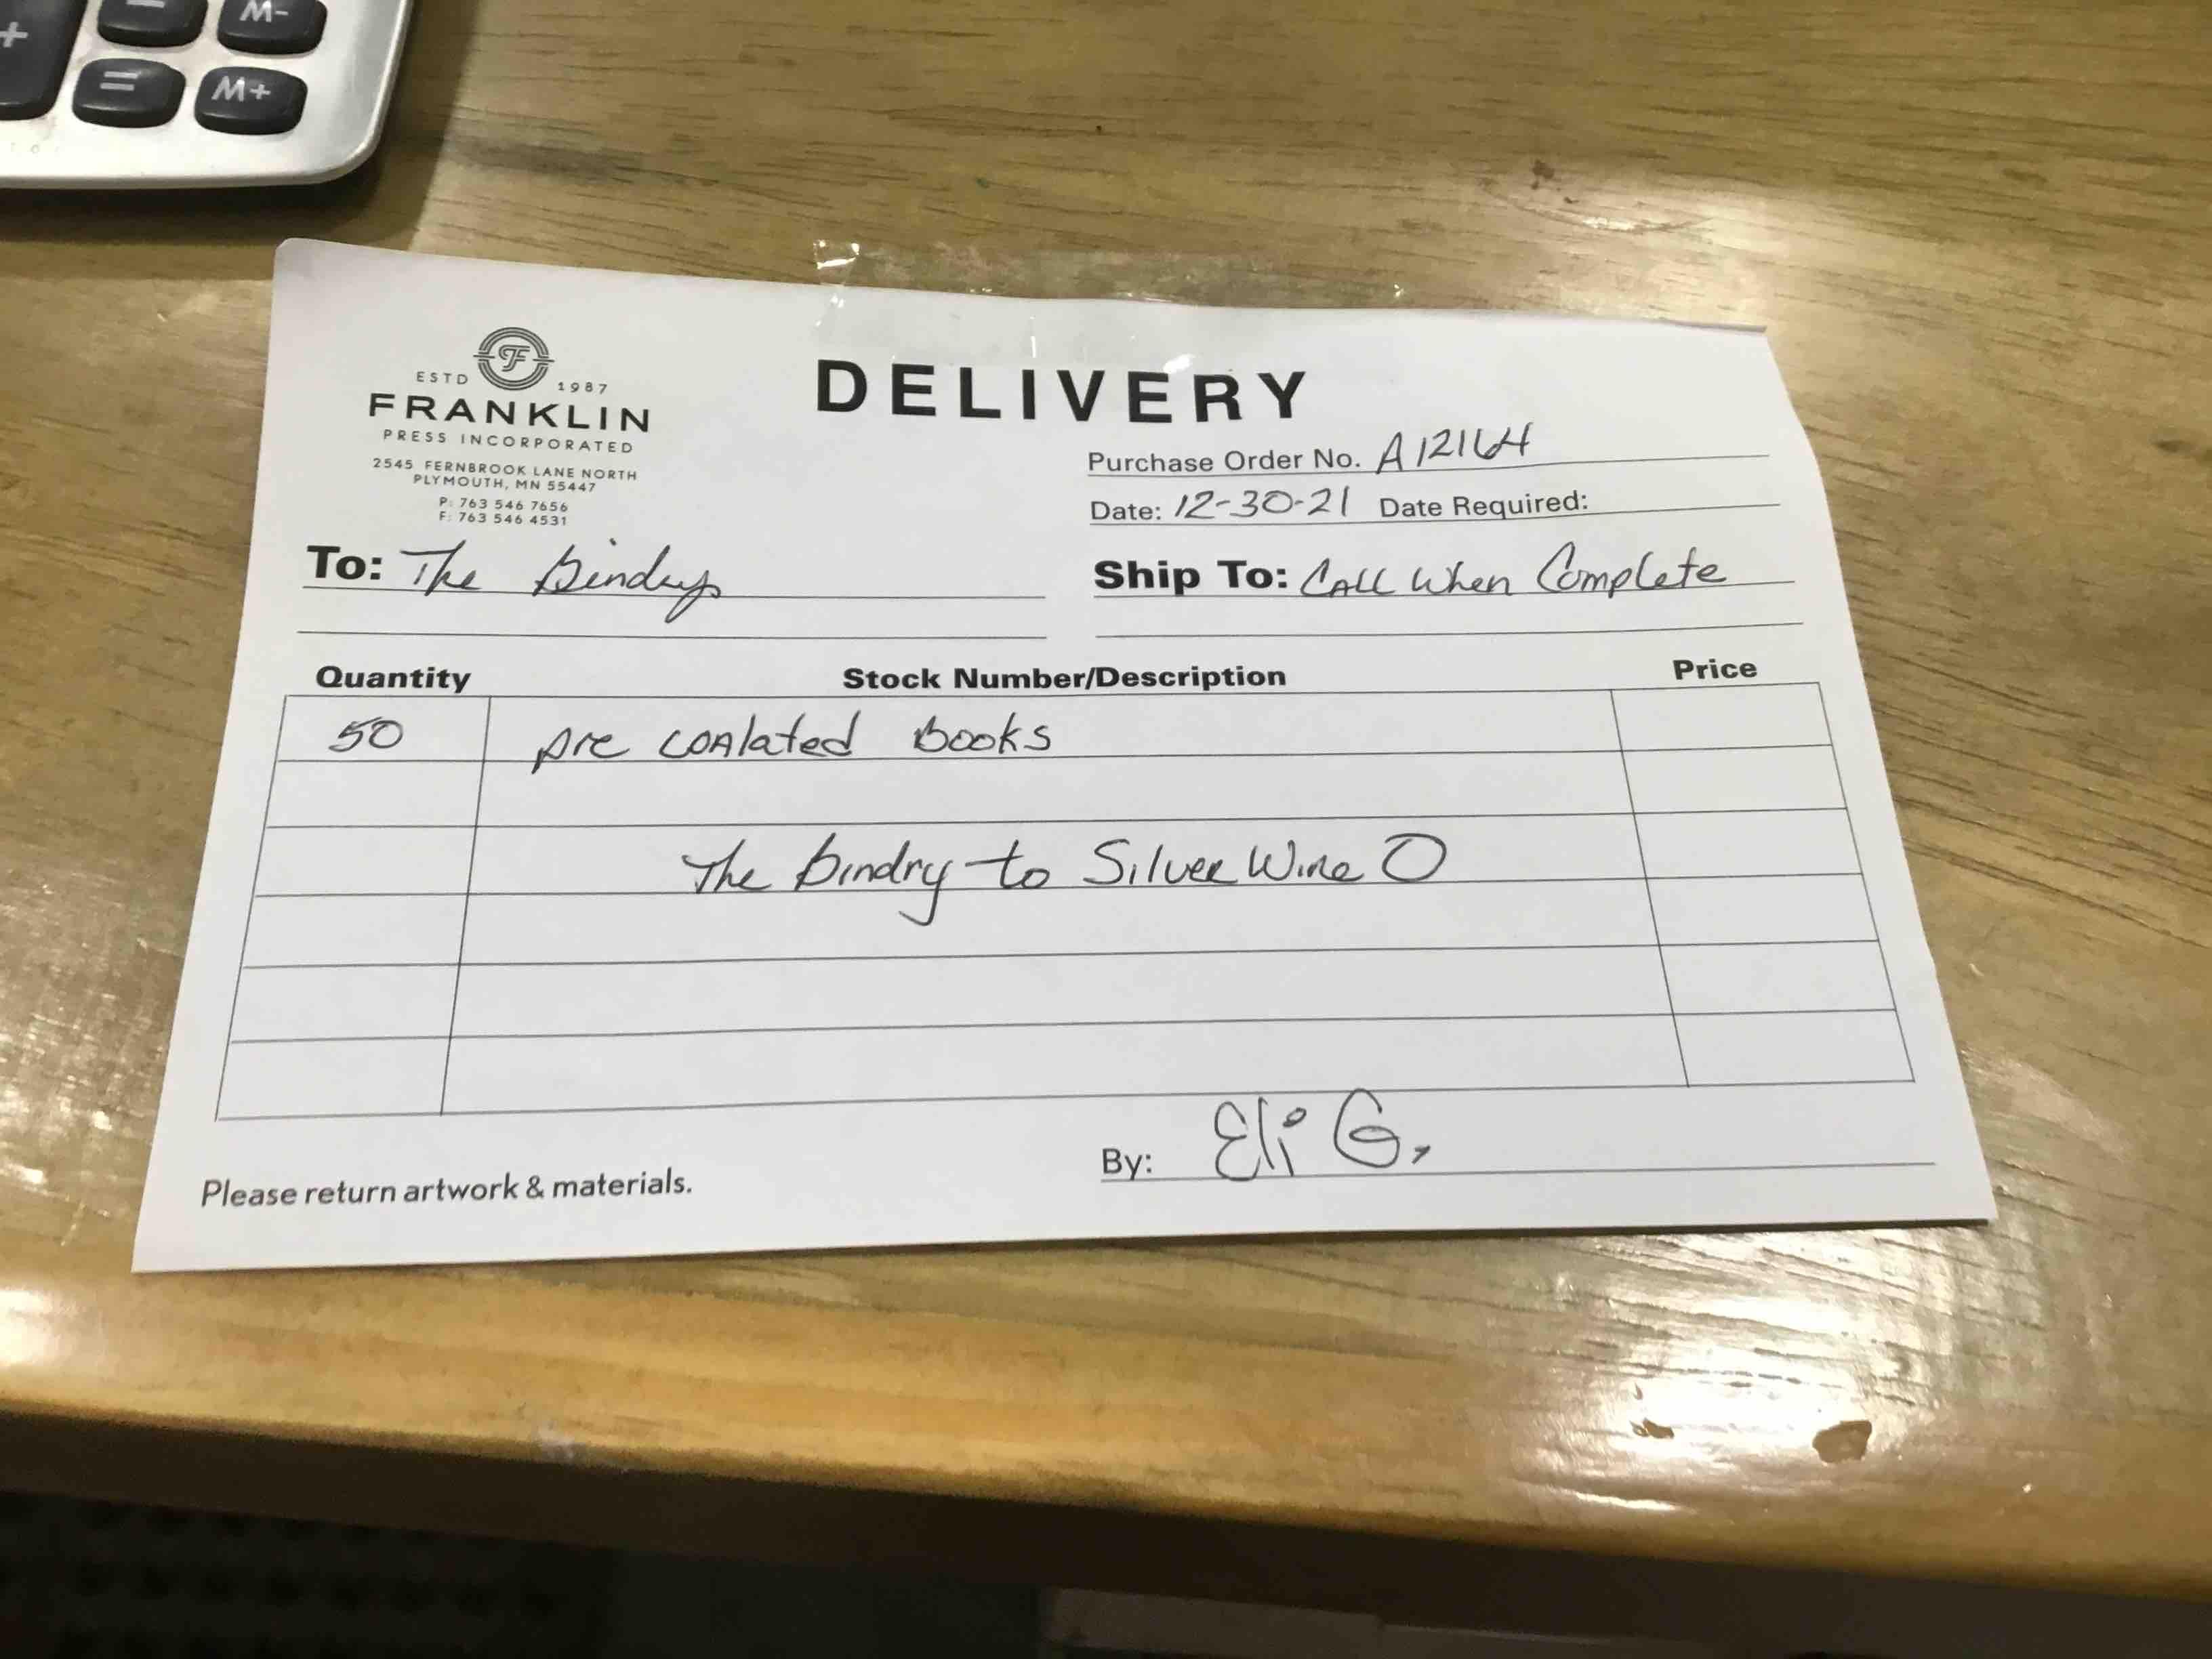 M-
+
=
M+
F
ESTD 1987
FRANKLIN
PRESS INCORPORATED
2545 FERNBROOK LANE NORTH
PLYMOUTH, MN 55447
P: 763 546 7656
F: 763 546 4531
DELIVERY
Purchase Order No. A12164
Date: 12-30-21 Date Required:
To: The Bindry
Ship To: CALL When Complete
Quantity Stock Number/Description Price
50 pre coalated Books
The Bindry to Silver Wire O
By: Eli G.
Please return artwork & materials.